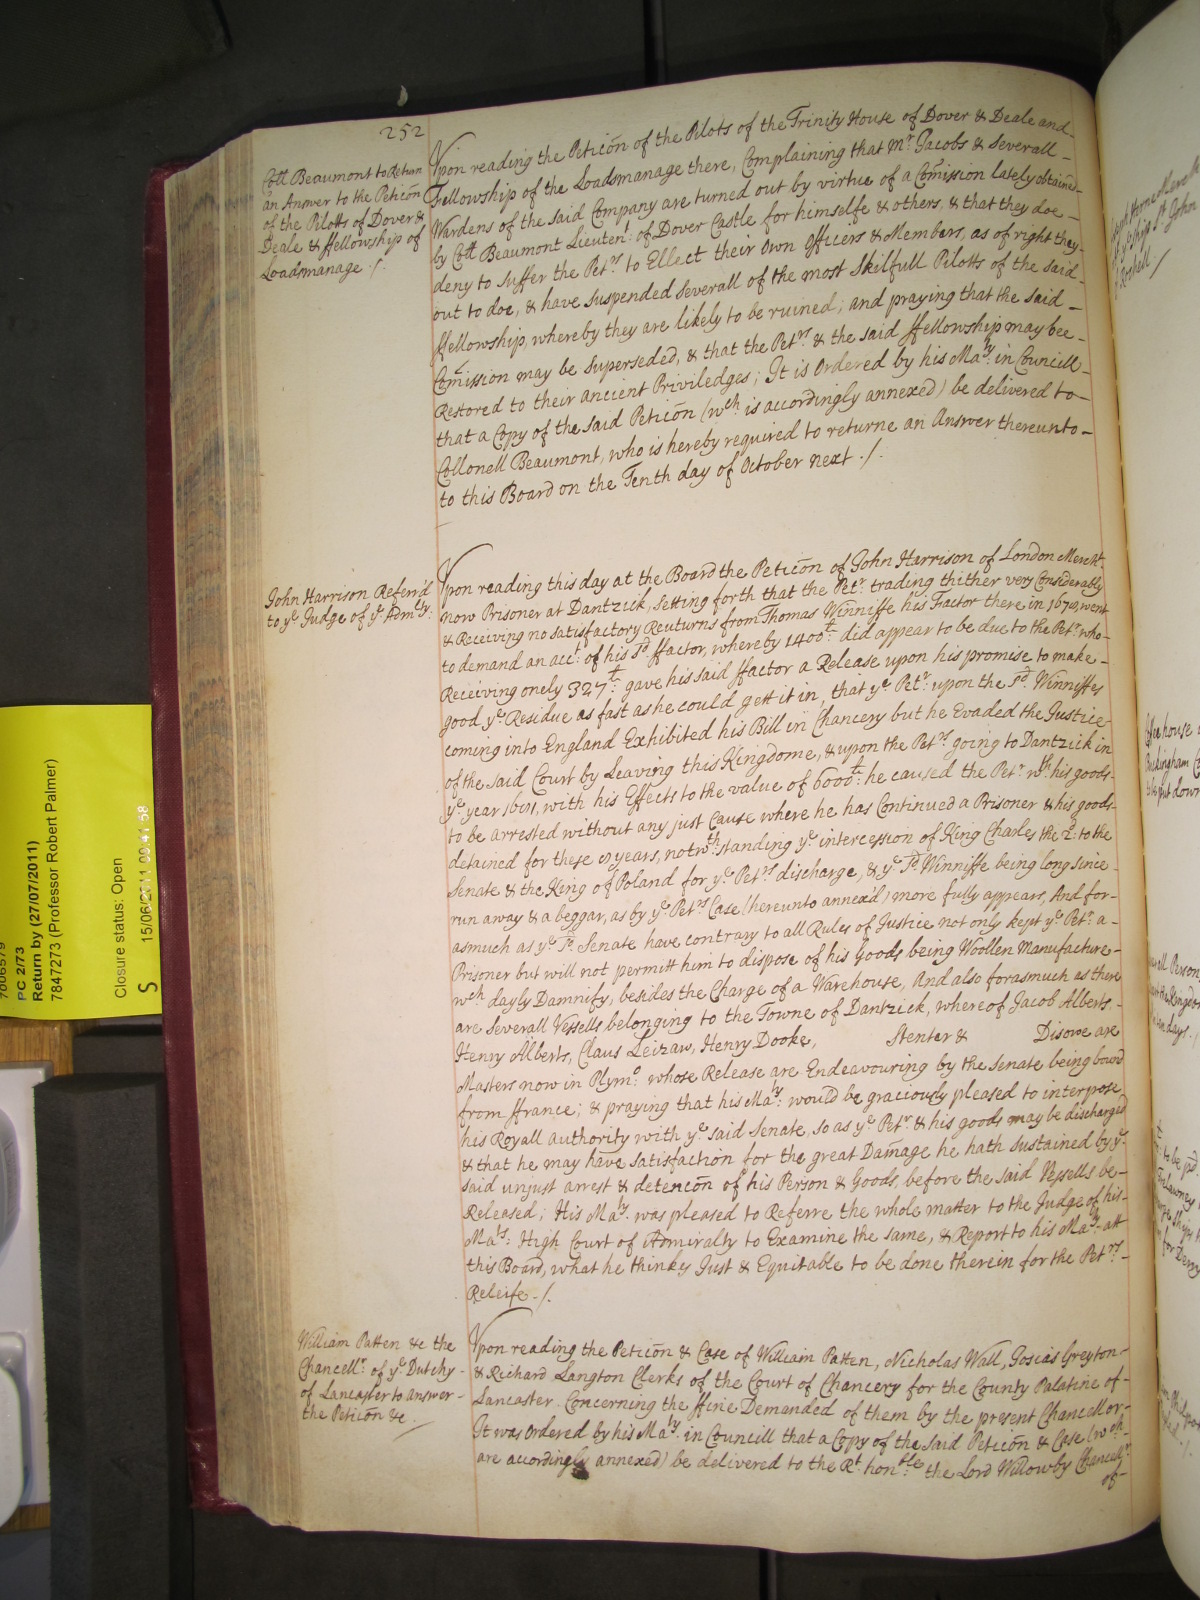 252
Coll Beaumont to Return
an Answer to the Peticōn
of the Pilotts of Dover &
Deale & ffellowship of
Loadsmanage /.
Vpon reading the Peticōn of the Pilots of the Trinity House of Dover & Deale and
Fellowship of the Loadsmanage there, Complaining that Mr Jacobs & severall
Wardens of the said Company are turned out by virtue of a Comission lately obtained
by Coll Beaumont Lieutent: of Dover Castle for himselfe & others, & that they doe
deny to suffer the Petrs to Ellect their own Officers & Members, as of right they
out to doe, & have suspended severall of the most Skilfull Pilotts of the said
ffellowship, whereby they are likely to be ruined; and praying that the said
Comission may be Superseded, & that the Petrs & the said ffellowship may bee
Restored to their ancient Priviledges; It is Ordered by his Maty: in Councill
that a Copy of the said Peticōn (wch is accordingly annexed) be delivered to
Collonell Beaumont, who is hereby required to returne an Answer thereunto
to this Board on the Tenth day of October next ./.
John Harrison Referr'd
to ye Judge of ye Admlty.
Vpon reading this day at the Board the Peticōn of John Harrison of London Mercht
now Prisoner at Dantzick, setting forth that the Petr. trading thither very Considerably
& Receiving no satisfactory Reuturns from Thomas Winniffe his Factor there in 1670, went
to demand an acct. of his sd. ffactor, whereby 1400£: did appear to be due to the Petr. who
Receiving onely 327£: gave his said ffactor a Release upon his promise to make
good ye Residue as fast as he could gett it in, that ye Petr. upon the sd. Winniffes
coming into England Exhibited his Bill in Chancery but he Evaded the Justice
of the said Court by Leaving this Kingdome, & upon the Petrs going to Dantzick in
ye year 1681, with his Effects to the value of 6000£: he caused the Petr. wth his goods
to be arrested without any just Cause where he has Continued a Prisoner & his goods
detained for these years, notwthstanding ye intercession of King Charles the 2d: to the
Senate & the King of Poland for ye Petrs discharge, & ye sd Winniffe being long since
run away & a beggar, as by ye Petrs Case (hereunto annex'd) more fully appears, And for
asmuch as ye sd. Senate have contrary to all Rules of Justice not only kept ye Petr. a
Prisoner but will not permitt him to dispose of his Goods being Woollen Manufacture
wch dayly Damnify, besides the Charge of a Warehouse, And also forasmuch as there
are Severall Vessells belonging to the Towne of Dantzick, whereof Jacob Alberts,
Henry Alberts, Claus Leizaw, Henry Dooke, Stenter & Disowe are
Masters now in Plymo: whose Release are Endeavouring by the Senate being bound
from ffrance; & praying that his Maty: would be graciously pleased to interpose
his Royall authority with ye said Senate, so as ye Petr. & his goods may be discharged
& that he may have satisfaction for the great Damage he hath sustained by ye
said unjust arrest & detencōn of his Person & Goods, before the said Vessells be
Released; His Maty. was pleased to Referre the whole matter to the Judge of his
Mats: High Court of Admiralty to Examine the same, & Report to his Maty. att
this Board, what he thinks Just & Equitable to be done therein for the Petrs
Releife ./.
William Patten &c the
Chancellr. of ye Dutchy
of Lancaster to answer
the Peticōn &c /
Vpon reading the Peticōn & Case of William Patten, Nicholas Wall, Josias Greyton
& Richard Langton Clerks of the Court of Chancery for the County Palatine of
Lancaster Concerning the ffine Demanded of them by the present Chancellor
It was Ordered by his Maty. in Councill that a Copy of the said Peticōn & Case (wch
are accordingly annexed) be delivered to the Rt. honble: the Lord Willowby Chancellr.
of
7606579
PC 2/73
Return by (27/07/2011)
7847273 (Professor Robert Palmer)
Closure status: Open
S 15/06/2011 09:41:58